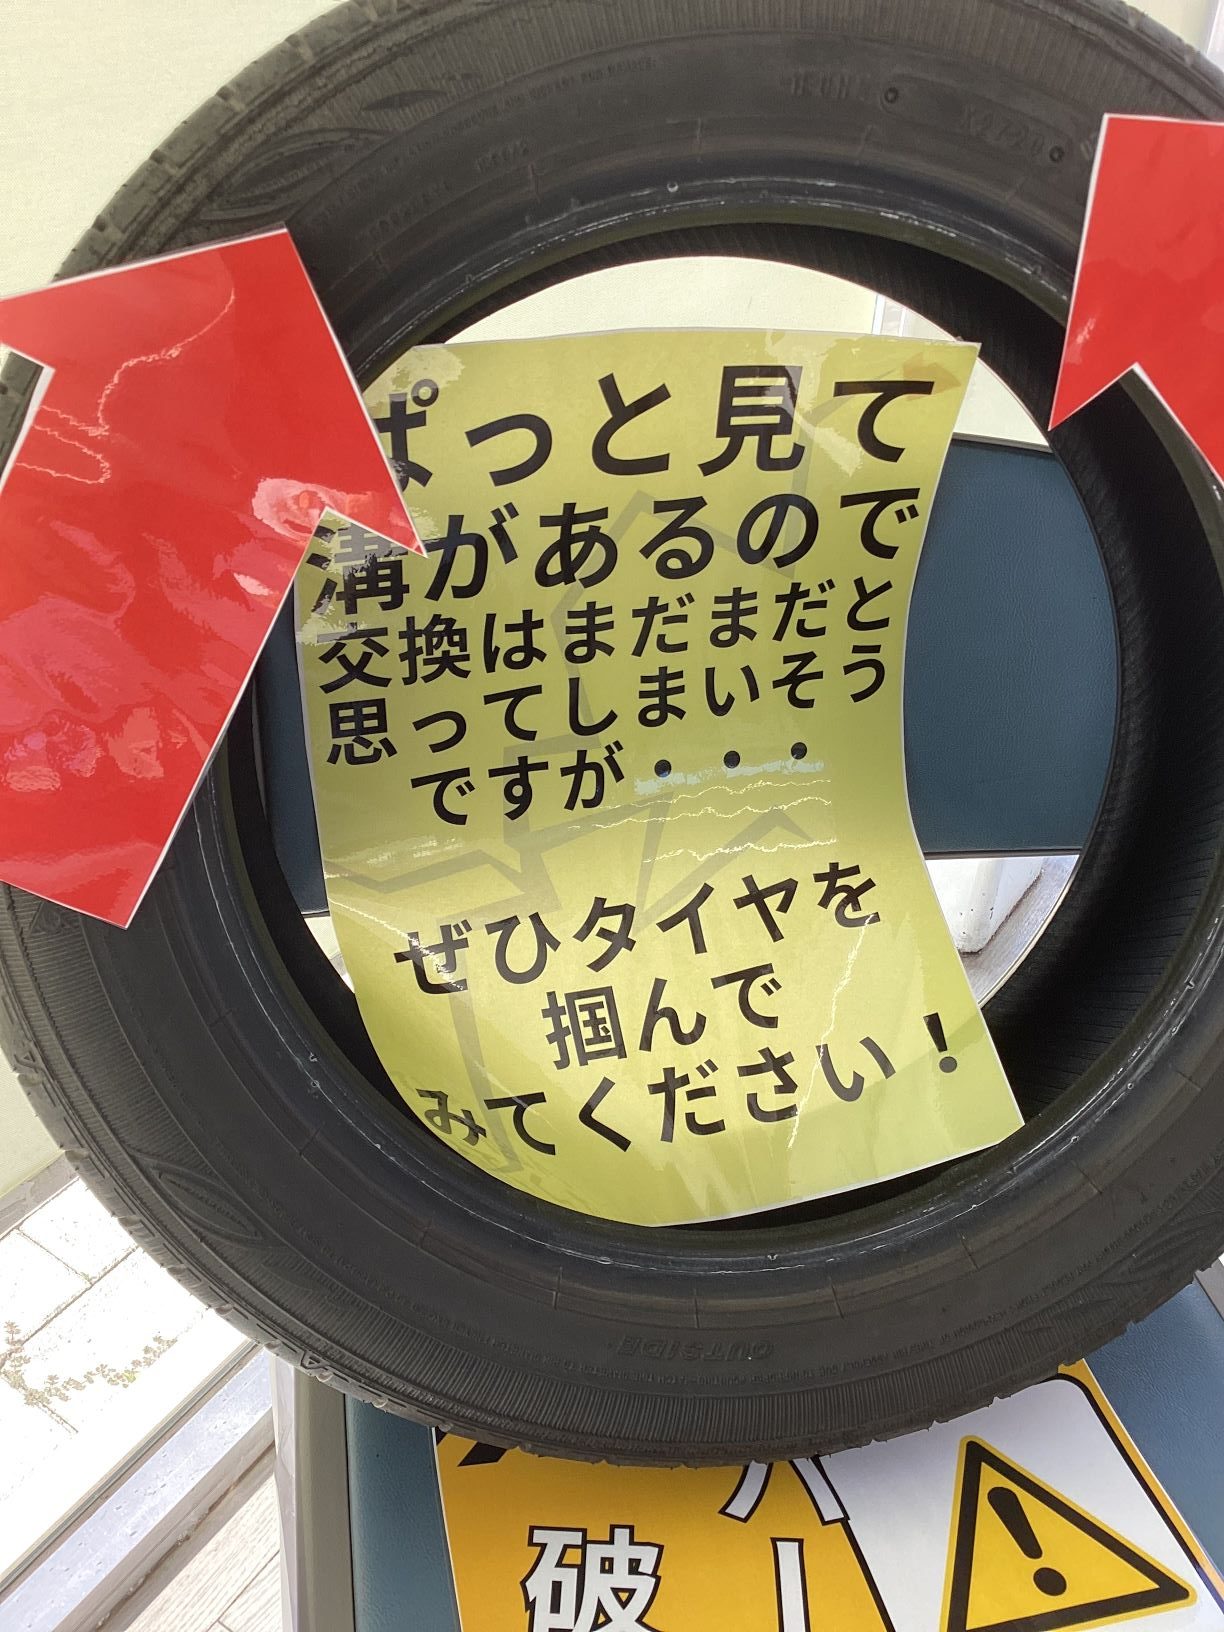 ぱっと見て
溝があるので
交換はまだまだと
思ってしまいそう
ですが・・・
ぜひタイヤを
掴んで
みてください！
OUTSIDE
破